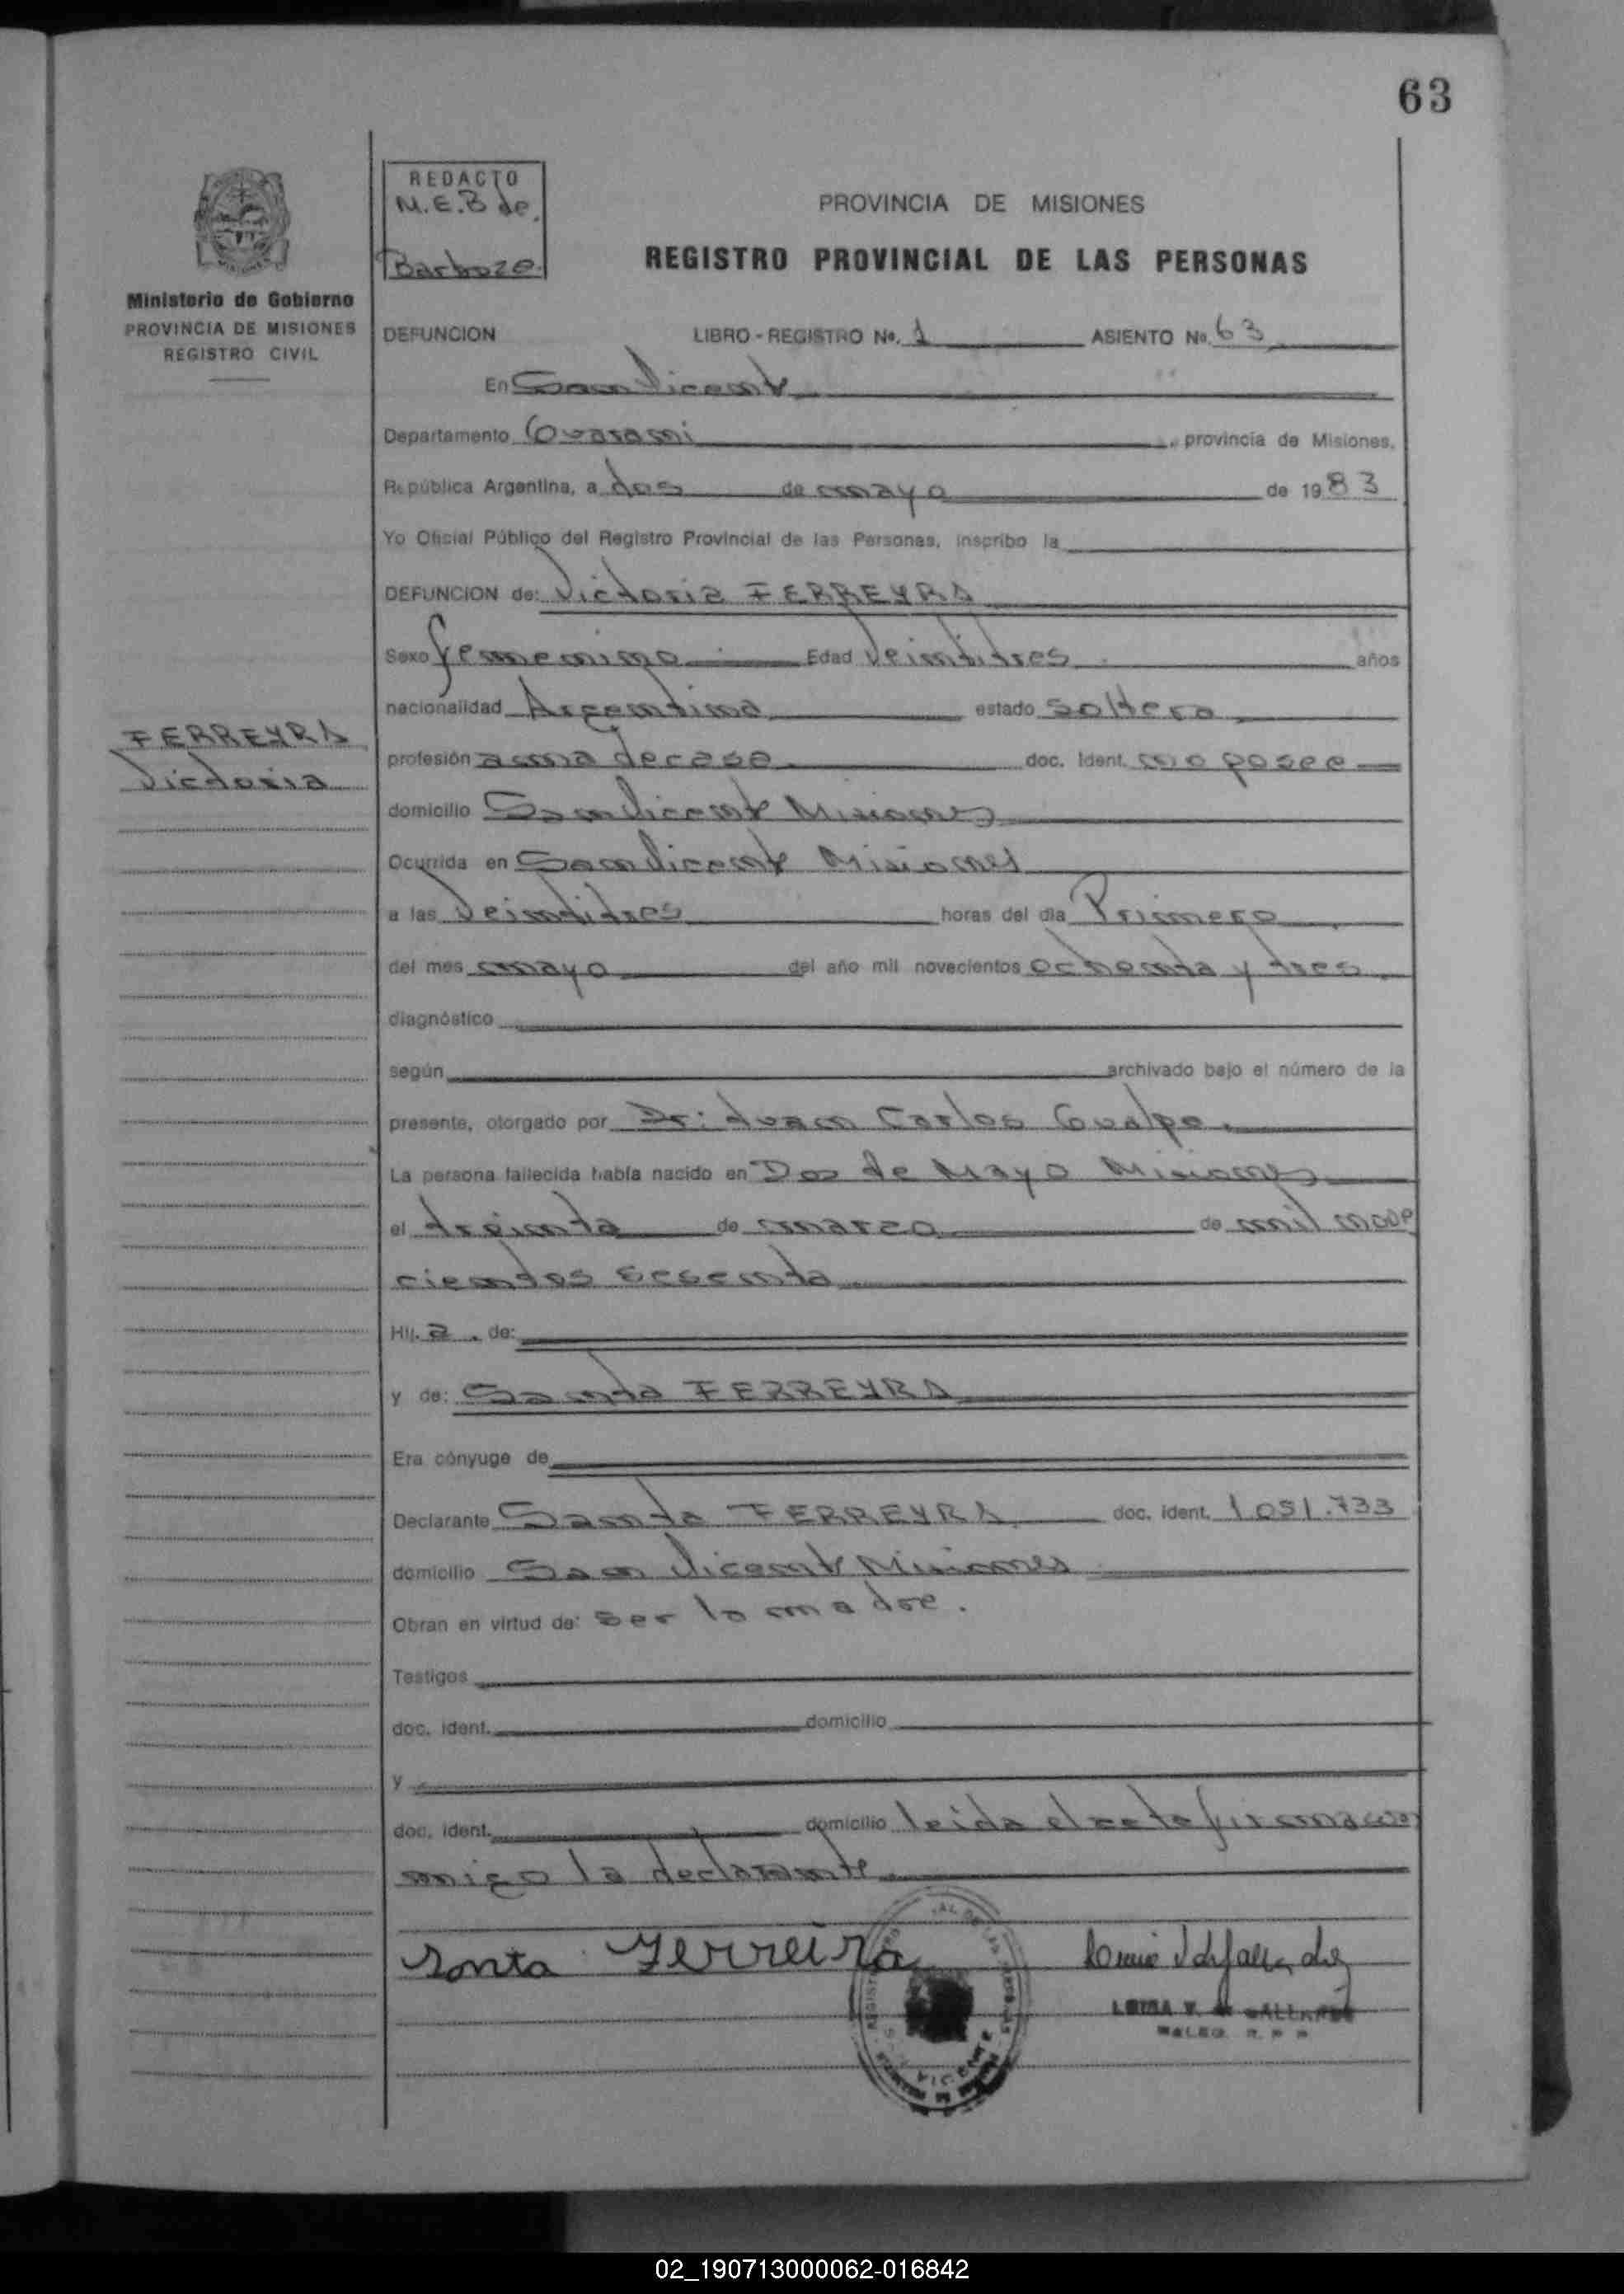 63
REDACTO
M.E.B de
Barboze
Ministerio de Gobierno
PROVINCIA DE MISIONES
REGISTRO CIVIL
PROVINCIA DE MISIONES
REGISTRO PROVINCIAL DE LAS PERSONAS
DEFUNCION LIBRO - REGISTRO No. 1 ASIENTO No. 63
En San Vicente
Departamento Guarani, provincia de Misiones,
República Argentina, a dos de mayo de 1983
Yo Oficial Público del Registro Provincial de las Personas, inscribo la
DEFUNCION de: Victoria FERREYRA
Sexo femenino Edad Veintitres años
nacionalidad Argentina estado soltera
FERREYRA
Victoria
profesión ama de casa doc. Ident. no posee
domicilio San Vicente Misiones
Ocurrida en San Vicente Misiones
a las Veintitres horas del día Primero
del mes mayo del año mil novecientos ochenta y tres
diagnóstico
según archivado bajo el número de la
presente, otorgado por Dr: Juan Carlos Gualpe.
La persona fallecida había nacido en Dos de Mayo Misiones
el treinta de marzo de mil nove
cientos sesenta
Hij a . de:
y de: Santa FERREYRA
Era cónyuge de
Declarante Santa FERREYRA doc. ident. 1.051.733
domicilio San Vicente Misiones
Obran en virtud de: ser la madre.
Testigos
doc. ident. domicilio
y
doc. ident. domicilio leida el acta firma con
migo la declarante
Santa Ferreira
VICENTE
02_190713000062-016842